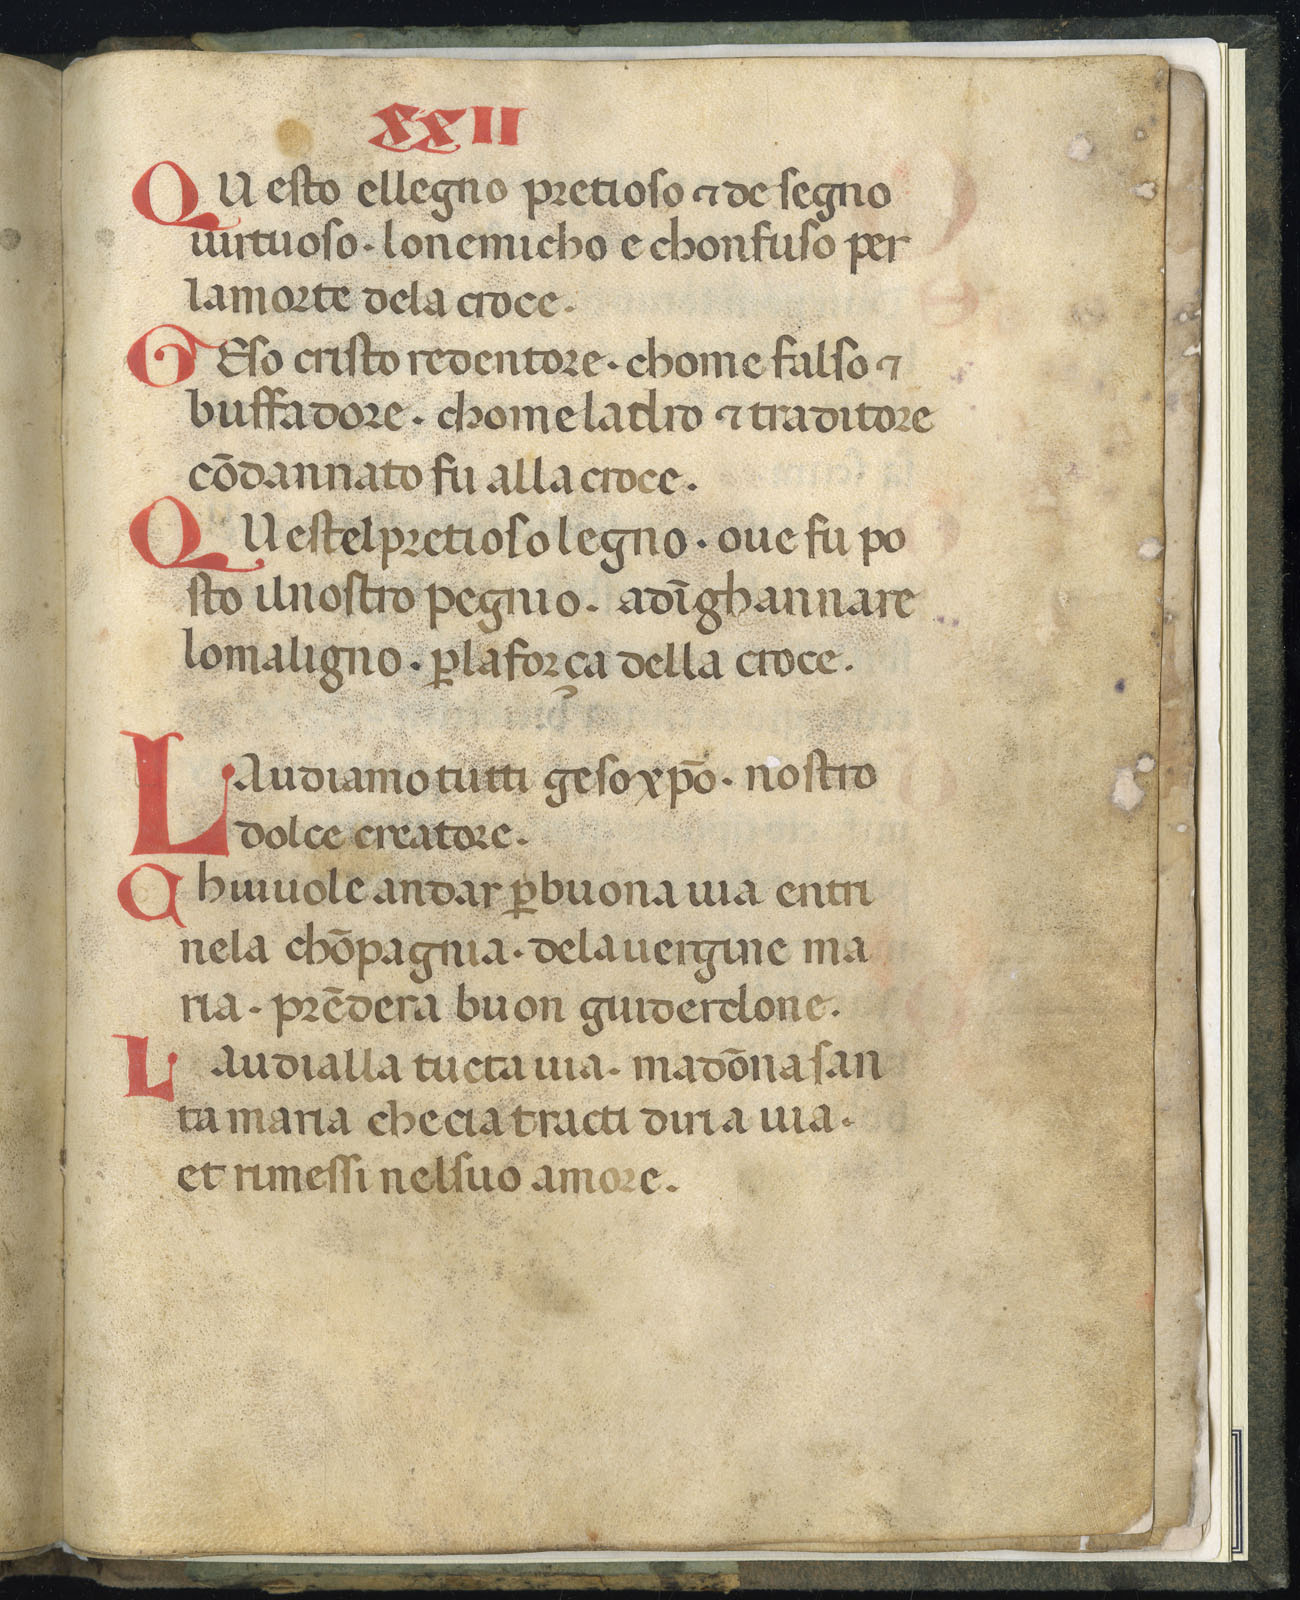 XXII
QU esto ellegno pretioso ⁊ de segno
uirtuoso · lonemicho e chonfuso per
lamorte dela croce ·
GEso cristo redentore · chome falso ⁊
buffadore · chome ladro ⁊ traditore
cōdannato fu alla croce ·
QU estel pretioso legno · oue fu po
sto ilnostro pegnio · adīghannare
lomaligno · ꝑlaforça della croce ·
LAudiamo tutti geso xp̄o · nostro
dolce creatore ·
Chi uuole andar ꝑbuona uia entri
nela chōpagnia · delauergine ma
ria · prēdera buon guiderdone ·
LAudialla tucta uia · madōna san
ta maria checia tracti diria uia ·
et rimessi nelsuo amore ·